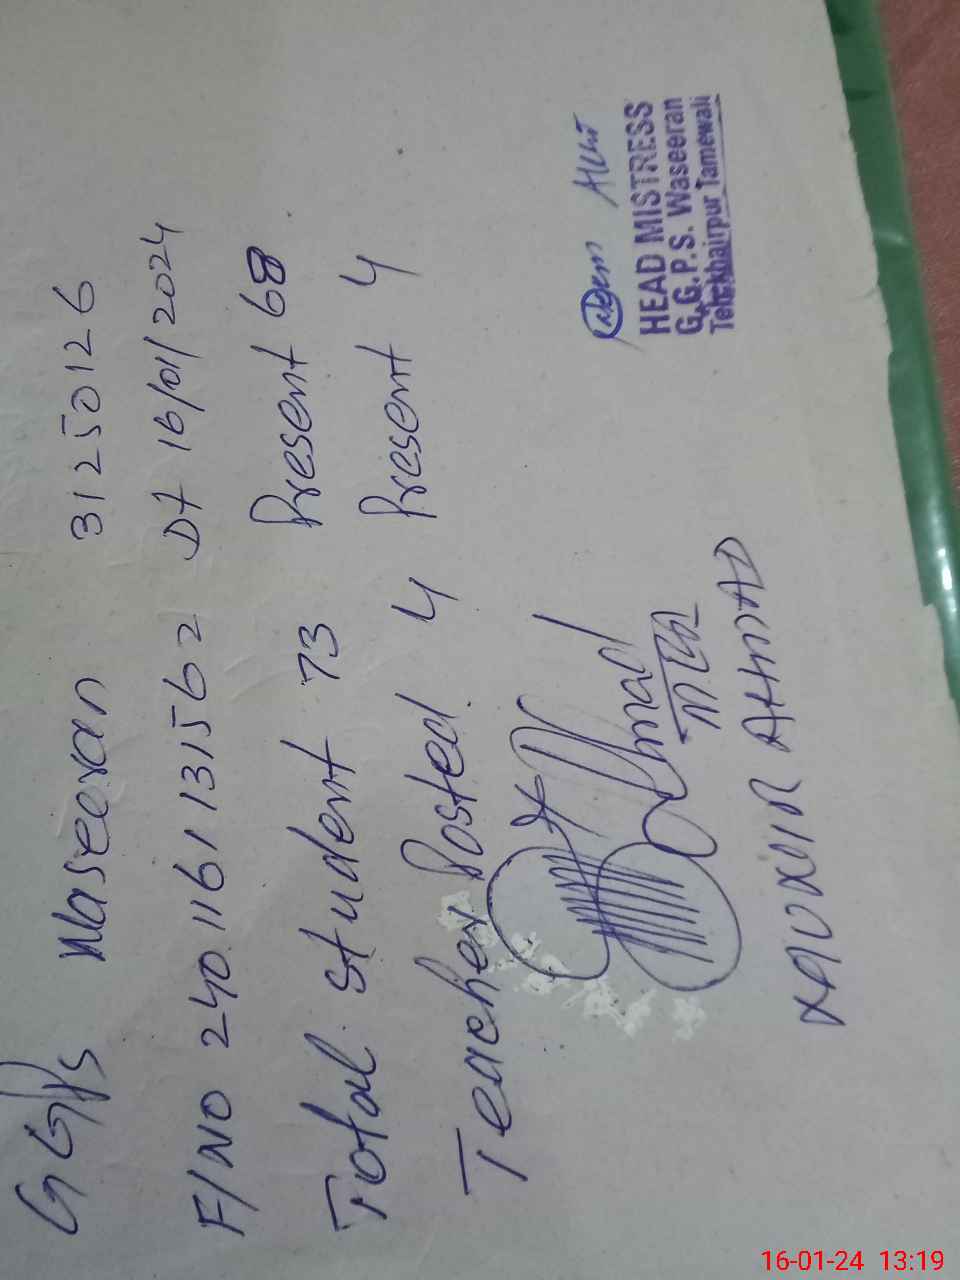 GGPS Waseeran 3125012 6
F/NO 2401161131562 DT 16/01/2024
Total student 73 Present 68
Teacher Posted 4 Present 4
Ahmad
MEA
AHMAD
HEAD MISTRESS
G.G.P.S. Waseeran
Teh: khairpur Tamewali
16-01-24 13:19